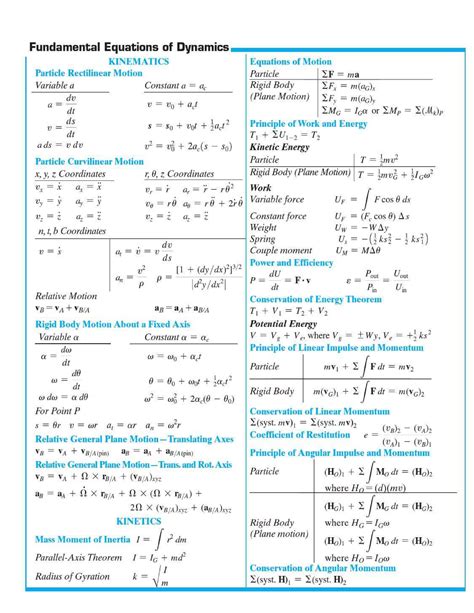 Fundamental Equations of Dynamics
KINEMATICS
Particle Rectilinear Motion
Variable a Constant a = a_c
a = dv/dt v = v_0 + a_c t
v = ds/dt s = s_0 + v_0 t + ½ a_c t²
a ds = v dv v² = v_0² + 2a_c(s − s_0)
Particle Curvilinear Motion
x, y, z Coordinates r, θ, z Coordinates
v_x = ẋ a_x = ẍ v_r = ṙ a_r = r̈ − rθ̇²
v_y = ẏ a_y = ÿ v_θ = rθ̇ a_θ = rθ̈ + 2ṙθ̇
v_z = ż a_z = z̈ v_z = ż a_z = z̈
n, t, b Coordinates
v = ṡ a_t = v̇ = v dv/ds
a_n = v²/ρ ρ = [1 + (dy/dx)²]^3/2 / |d²y/dx²|
Relative Motion
v_B = v_A + v_B/A a_B = a_A + a_B/A
Rigid Body Motion About a Fixed Axis
Variable α Constant α = α_c
α = dω/dt ω = ω_0 + α_c t
ω = dθ/dt θ = θ_0 + ω_0 t + ½ α_c t²
ω dω = α dθ ω² = ω_0² + 2α_c(θ − θ_0)
For Point P
s = θr v = ωr a_t = αr a_n = ω²r
Relative General Plane Motion—Translating Axes
v_B = v_A + v_B/A(pin) a_B = a_A + a_B/A(pin)
Relative General Plane Motion—Trans. and Rot. Axis
v_B = v_A + Ω × r_B/A + (v_B/A)_xyz
a_B = a_A + Ω̇ × r_B/A + Ω × (Ω × r_B/A) +
2Ω × (v_B/A)_xyz + (a_B/A)_xyz
KINETICS
Mass Moment of Inertia I = ∫ r² dm
Parallel-Axis Theorem I = I_G + md²
Radius of Gyration k = √(I/m)
Equations of Motion
Particle ΣF = ma
Rigid Body ΣF_x = m(a_G)_x
(Plane Motion) ΣF_y = m(a_G)_y
ΣM_G = I_G α or ΣM_P = Σ(ℳ_k)_P
Principle of Work and Energy
T_1 + ΣU_1−2 = T_2
Kinetic Energy
Particle T = ½mv²
Rigid Body (Plane Motion) T = ½mv_G² + ½I_G ω²
Work
Variable force U_F = ∫ F cos θ ds
Constant force U_F = (F_c cos θ) Δs
Weight U_W = −W Δy
Spring U_s = −(½ks_2² − ½ks_1²)
Couple moment U_M = M Δθ
Power and Efficiency
P = dU/dt = F·v ε = P_out/P_in = U_out/U_in
Conservation of Energy Theorem
T_1 + V_1 = T_2 + V_2
Potential Energy
V = V_g + V_e, where V_g = ±Wy, V_e = +½ks²
Principle of Linear Impulse and Momentum
Particle mv_1 + Σ∫F dt = mv_2
Rigid Body m(v_G)_1 + Σ∫F dt = m(v_G)_2
Conservation of Linear Momentum
Σ(syst. mv)_1 = Σ(syst. mv)_2
Coefficient of Restitution e = (v_B)_2 − (v_A)_2 / (v_A)_1 − (v_B)_1
Principle of Angular Impulse and Momentum
Particle (H_O)_1 + Σ∫M_O dt = (H_O)_2
where H_O = (d)(mv)
Rigid Body (H_G)_1 + Σ∫M_G dt = (H_G)_2
(Plane motion) where H_G = I_G ω
(H_O)_1 + Σ∫M_O dt = (H_O)_2
where H_O = I_O ω
Conservation of Angular Momentum
Σ(syst. H)_1 = Σ(syst. H)_2